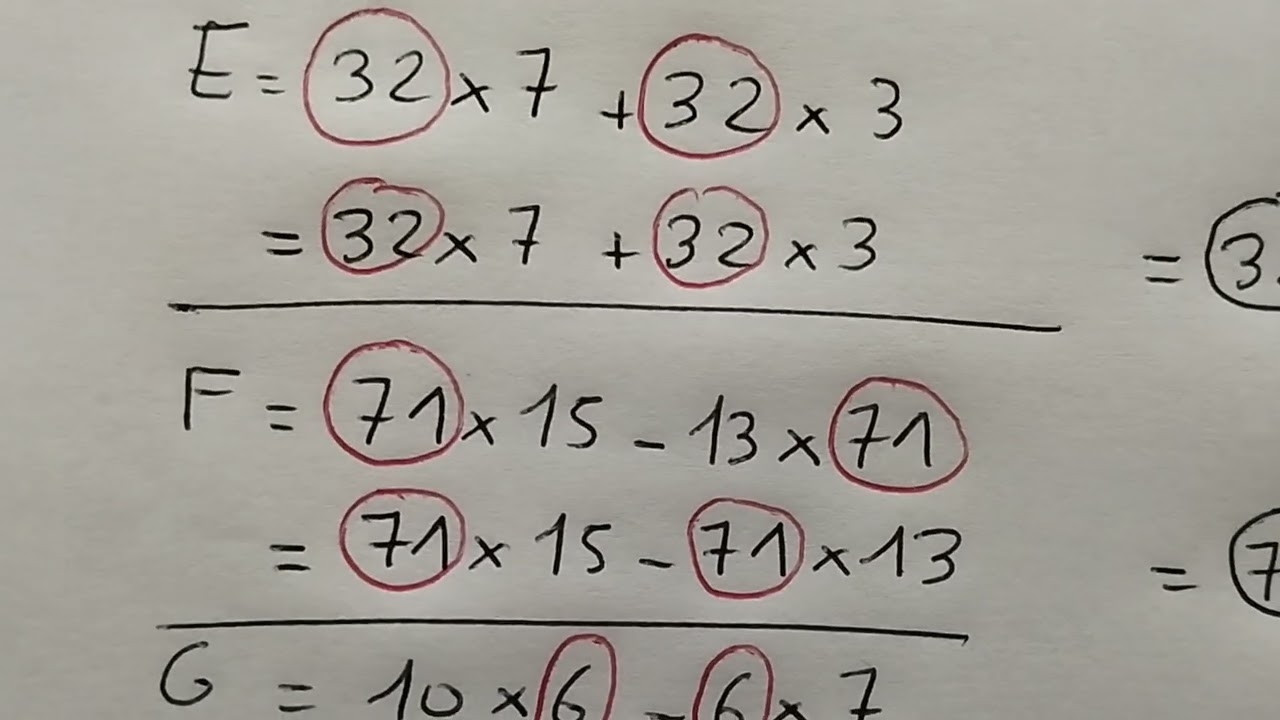 E = 32 × 7 + 32 × 3
= 32 × 7 + 32 × 3 = 3
F = 71 × 15 - 13 × 71
= 71 × 15 - 71 × 13 = 7
G = 10 × 6 - 6 × 7